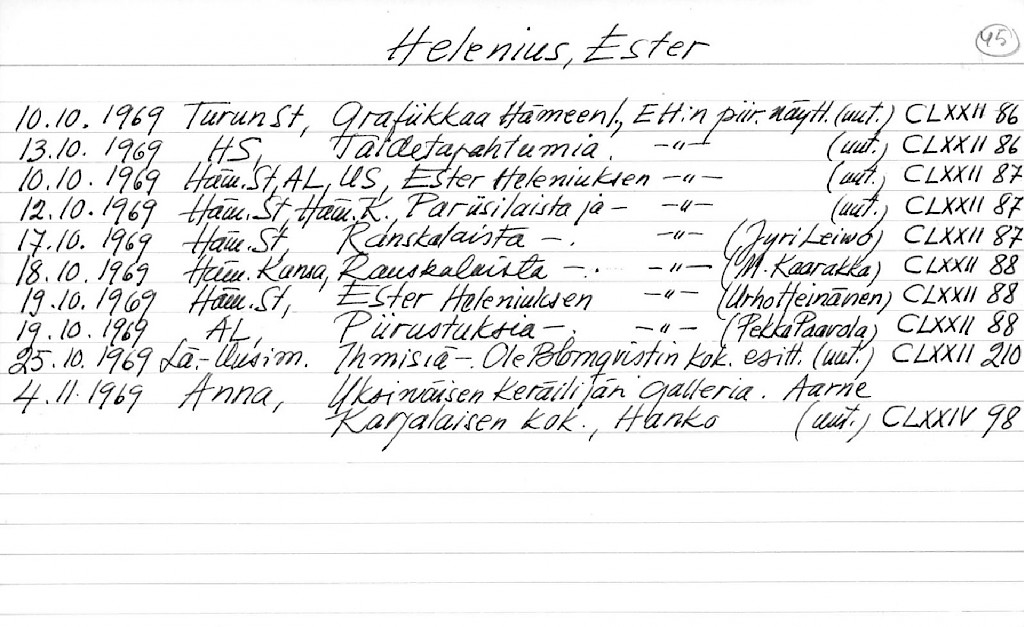 Helenius, Ester
45
10.10. 1969 Turun St, Grafiikkaa Hämeenl., EH:n piir. näytt. (uut.) CLXXII 86
13.10. 1969 HS, Taidetapahtumia. –"– (uut.) CLXXII 86
10.10. 1969 Häm. St, AL, US, Ester Heleniuksen –"– (uut.) CLXXII 87
12.10. 1969 Häm. St, Häm. K., Pariisilaista ja – –"– (uut.) CLXXII 87
17.10. 1969 Häm. St, Ranskalaista –. –"– (Jyri Leiwo) CLXXII 87
18.10. 1969 Häm. Kansa, Ranskalaista –. –"– (M. Kaarakka) CLXXII 88
19.10. 1969 Häm. St, Ester Heleniuksen –"– (Urho Heinänen) CLXXII 88
19.10. 1969 AL, Piirustuksia –. –"– (Pekka Paavola) CLXXII 88
25.10. 1969 Lä.-Uusim. Ihmisiä –. Ole Blomqvistin kok. esitt. (uut.) CLXXII 210
4.11.1969 Anna, Yksinäisen keräilijän galleria. Aarne
Karjalaisen kok., Hanko (uut.) CLXXIV 98